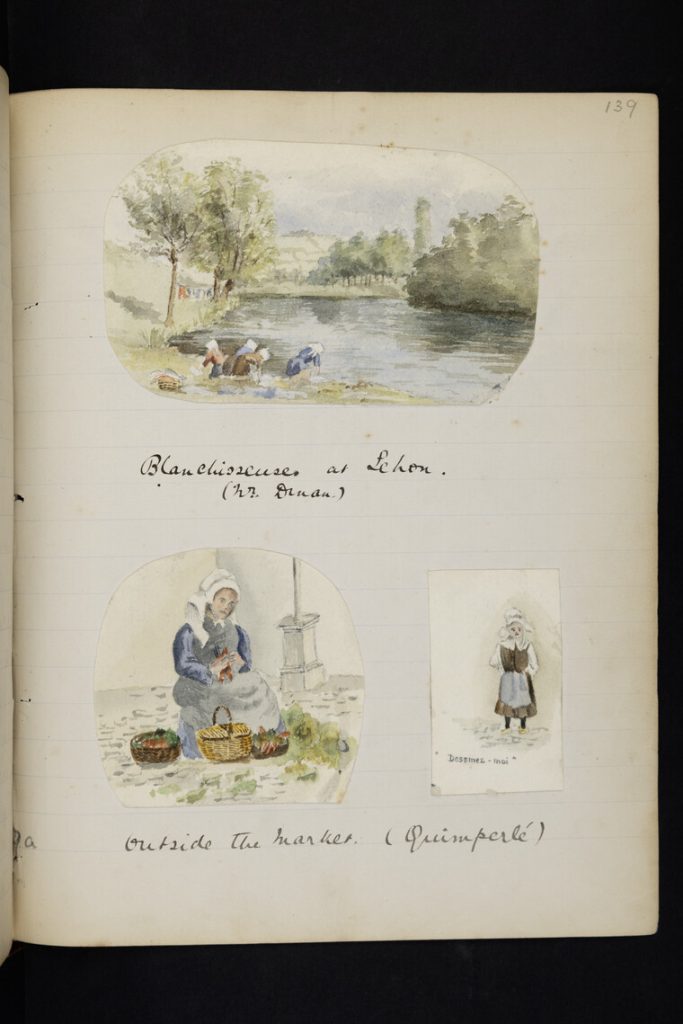 139
Blanchisseuses at Lehon.
(nr. Dinan.)
"Dessinez-moi"
9a
Outside the Market. (Quimperlé)